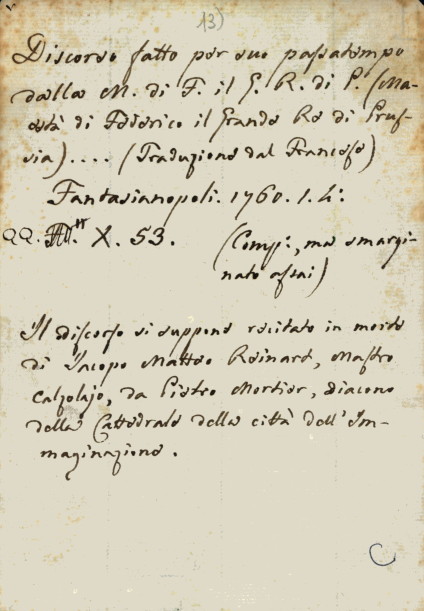 13)
Discorso fatto per suo passatempo
dalla M. di F. il G. R. di P. (Ma-
està di Federico il Grande Re di Prus-
sia).... (Traduzione dal Francese)
Fantasianopoli. 1760. 1. 4.
QQ. X. 53. (Comp:, ma smargi-
nato assai)
Il discorso si suppone recitato in morte
di Jacopo Matteo Reinard, Mastro
Calzolajo, da Pietro Mortier, Diacono
della Cattedrale della città dell'Im-
maginazione.
C